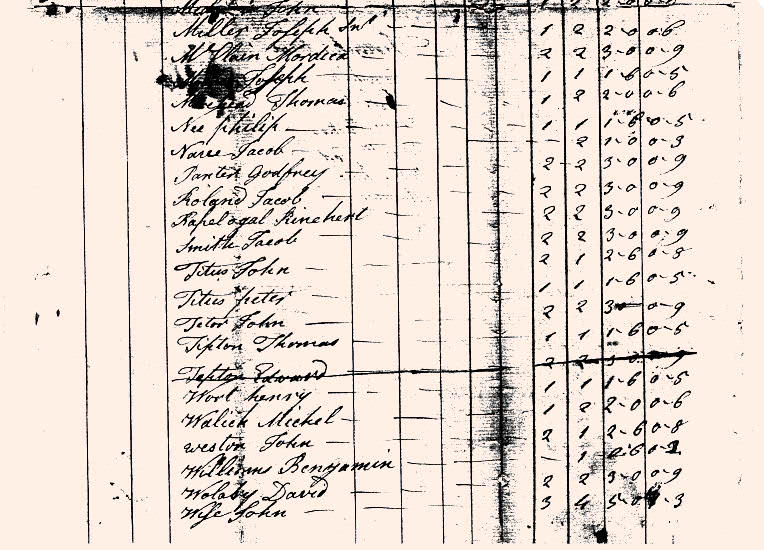 John
Miller Joseph Snr 1 2 2-0 0-6
McClain Mordica 2 2 3-0 0-9
Joseph 1 1 1-6 0-5
Thomas 1 2 2-0 0-6
Nee philip 1 1 1-6 0-5
Naree Jacob 2 1-0 0-3
Panter Godfrey 2 2 3-0 0-9
Roland Jacob 2 2 3-0 0-9
Rapelogal Rinehert 2 2 3-0 0-9
Smith Jacob 2 2 3-0 0-9
Titus John 2 1 2-6 0-8
Titus peter 1 1 1-6 0-5
Tetor John 2 2 3-0 0-9
Tipton Thomas 1 1 1-6 0-5
Tipton Edward 2 2 3-0 0-9
Wort henry 1 1 1-6 0-5
Walich Michel 1 2 2-0 0-6
weston John 2 1 2-6 0-8
Williams Benjamin 1
Wolaby David 2 2 3-0 0-9
Wise John 3 4 5-0 1-3